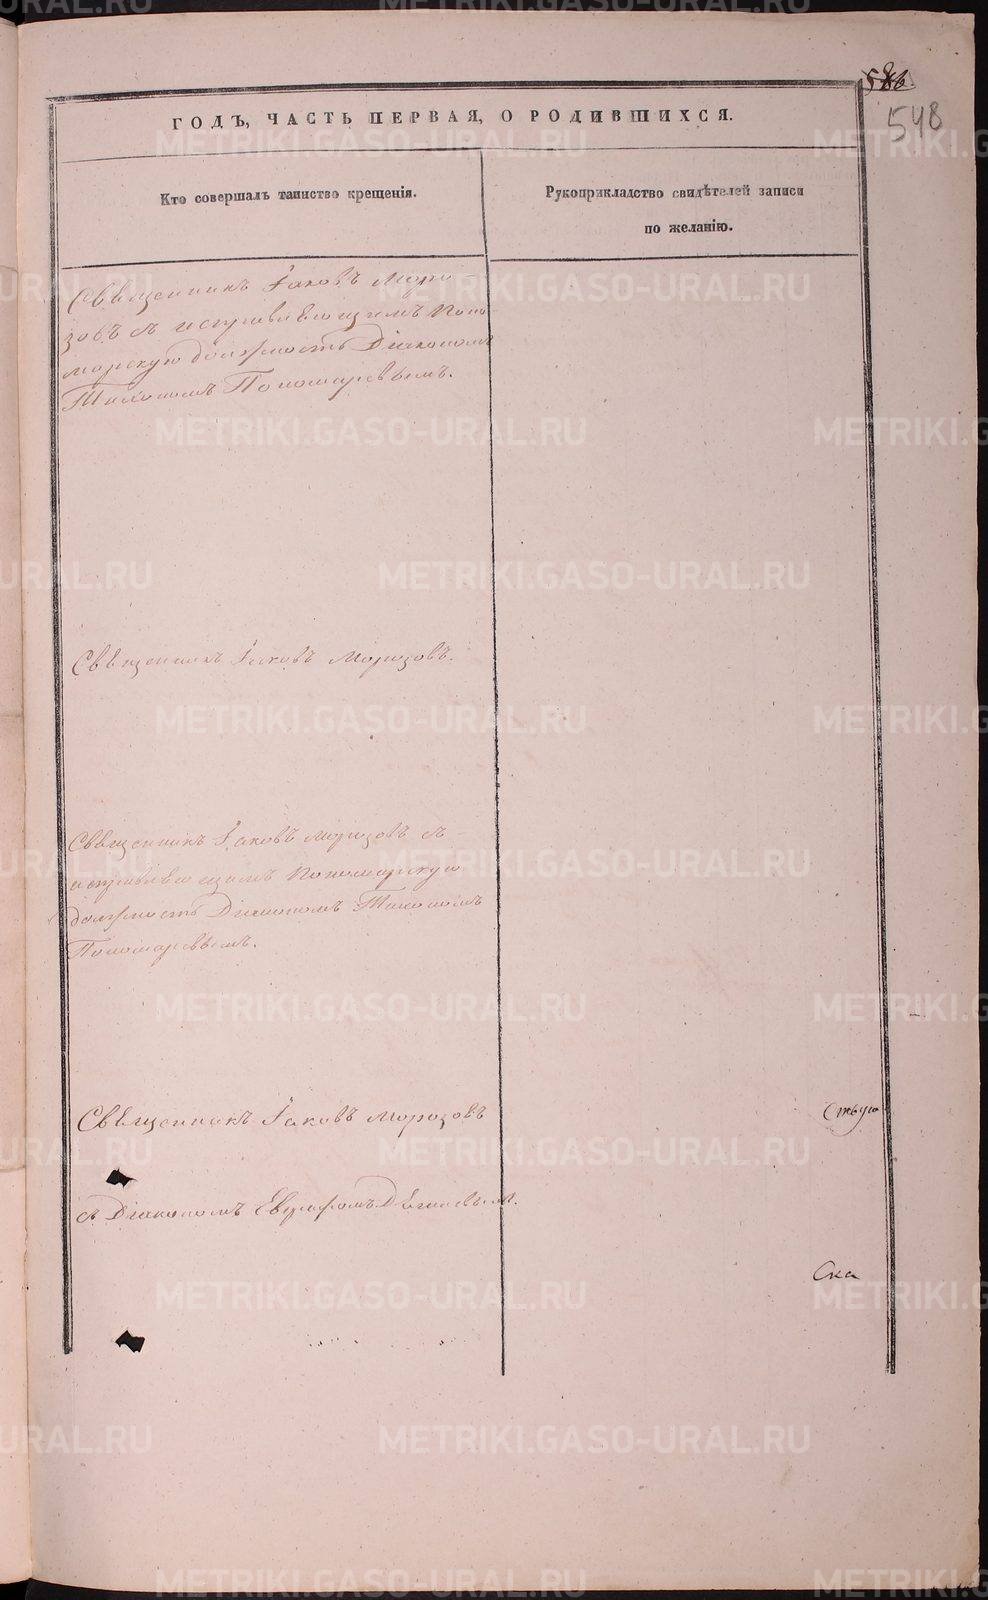 548
ГОДЪ, ЧАСТЬ ПЕРВАЯ, О РОДИВШИХСЯ.
Кто совершалъ таинство крещенія.
Рукоприкладство свидѣтелей записи
по желанію.
Священникъ Іаковъ Моро-
зовъ съ исправляющимъ Поно-
марскую должность Діакономъ
Тихономъ Пономаревымъ.
Священникъ Іаковъ Морозовъ.
Священникъ Іаковъ Морозовъ съ
исправляющимъ Пономарскую
должность Діакономъ Тихономъ
Пономаревымъ.
Священникъ Іаковъ Морозовъ
съ Діакономъ
Ска
METRIKI.GASO-URAL.RU